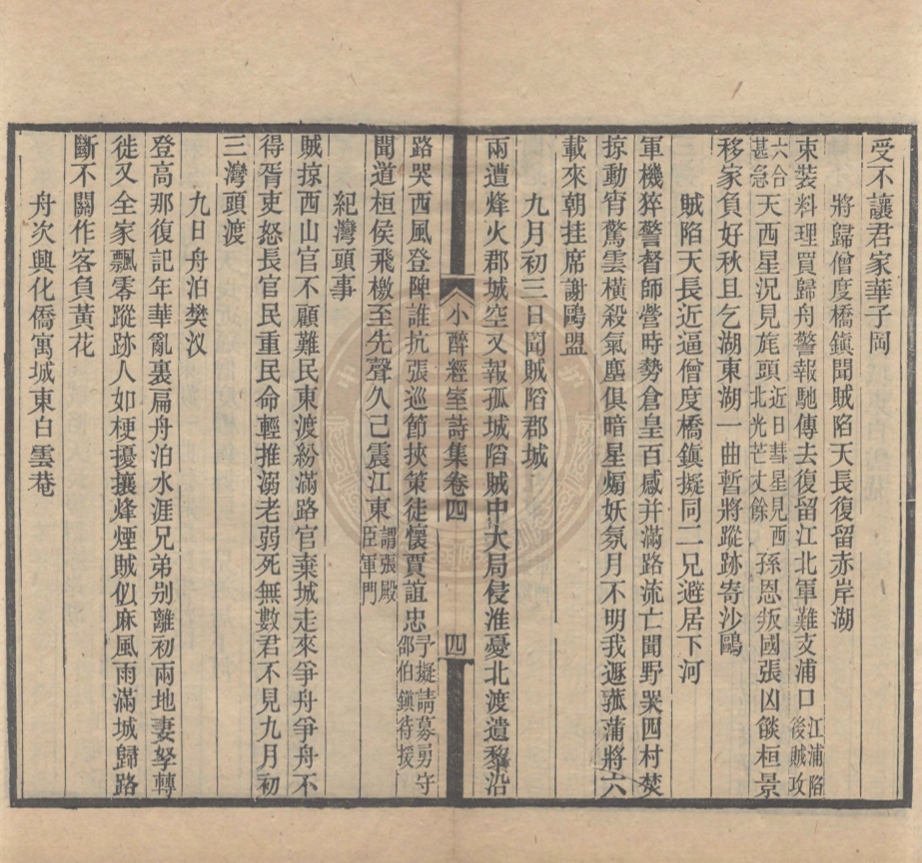 受不讓君家華子岡
將歸僧度橋鎮聞賊陷天長復留赤岸湖
束裝料理買歸舟警報馳傳去復留江北軍難支浦口江浦陷後賊攻
六合甚急天西星況見旄頭近日彗星見西北光芒丈餘孫恩叛國張凶燄桓景
移家負好秋且乞湖東湖一曲暫將蹤跡寄沙鷗
賊陷天長近逼僧度橋鎮擬同二兄避居下河
軍機猝警督師營時勢倉皇百感并滿路流亡聞野哭四村焚
掠動宵驚雲橫殺氣塵俱暗星煽妖氛月不明我遯菰蒲將六
載來朝挂席謝鷗盟
九月初三日聞賊陷郡城
兩遭烽火郡城空又報孤城陷賊中大局侵淮憂北渡遺黎沿
小醉經室詩集卷四 四
路哭西風登陴誰抗張巡節挾策徒懷賈誼忠予擬請募勇守邵伯鎮待援
聞道桓侯飛檄至先聲久已震江東謂張殿臣軍門
紀灣頭事
賊掠西山官不顧難民東渡紛滿路官棄城走來爭舟爭舟不
得胥吏怒長官民重民命輕推溺老弱死無數君不見九月初
三灣頭渡
九日舟泊樊汊
登高那復記年華亂裏扁舟泊水涯兄弟別離初兩地妻孥轉
徙又全家飄零蹤跡人如梗擾攘烽煙賊似麻風雨滿城歸路
斷不關作客負黃花
舟次興化僑寓城東白雲菴